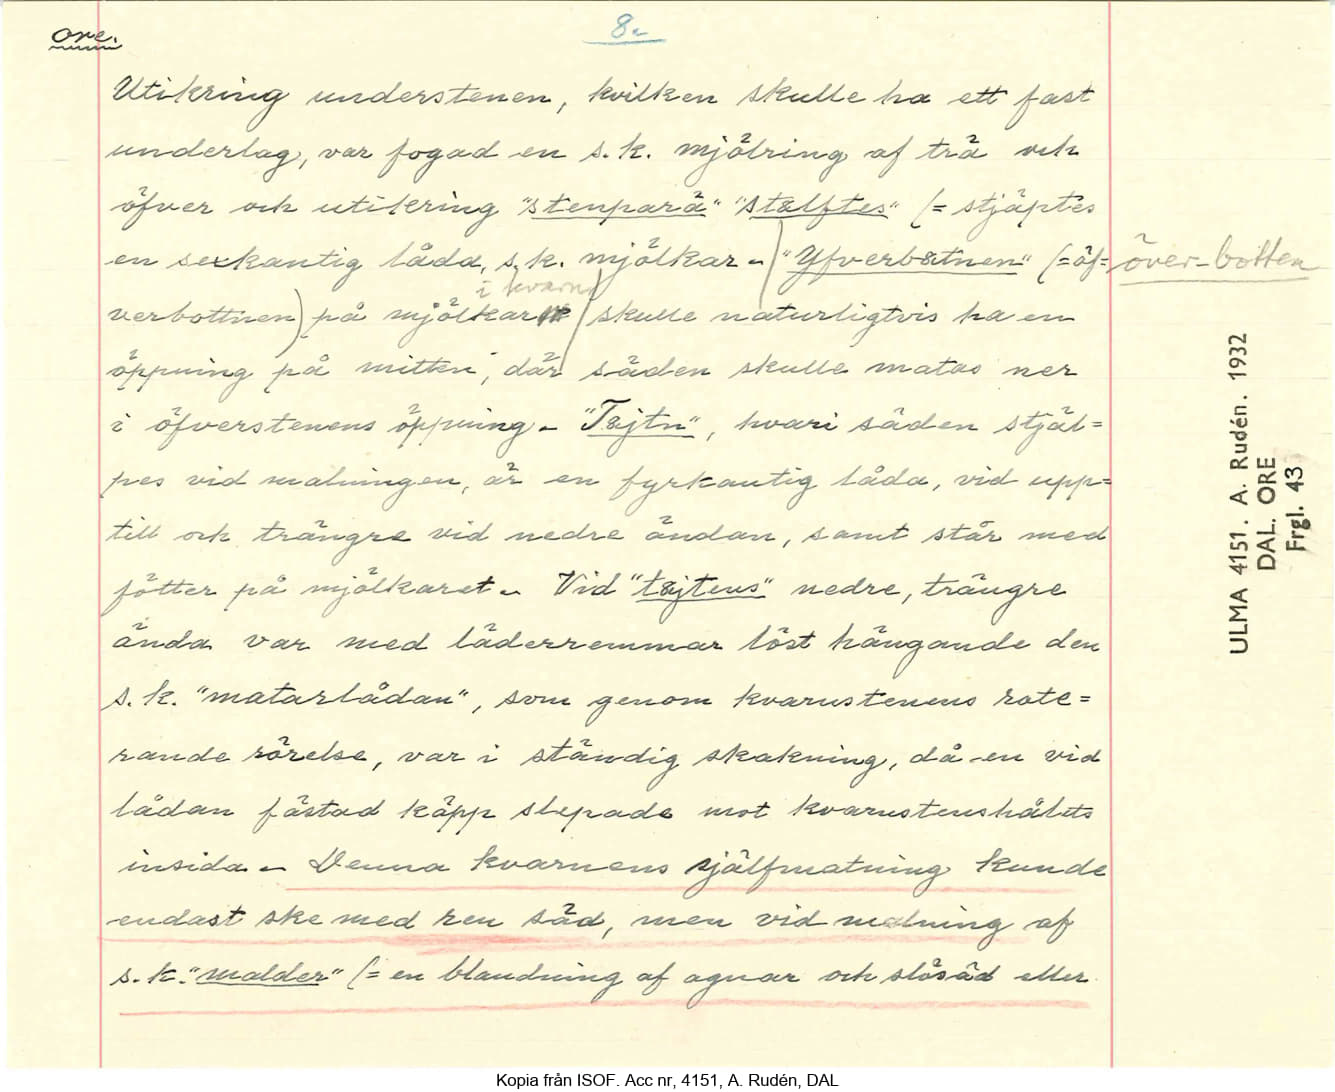 Ore.
8.
Utikring understenen, hvilken skulle ha ett fast
underlag, var fogad en s.k. mjölring af trä och
öfver och utikring "stenparä" "stälftes" (= stjäptes
en sexkantig låda, s.k. mjölkar. "Yfverbåtnen" (=öf= över-botten
i kvarn
verbottnen) på mjölkaret skulle naturligtvis ha en
öppning på mitten, där säden skulle matas ner
i öfverstenens öppning. "Tøjtn", hvari säden stjäl=
pes vid malningen, är en fyrkantig låda, vid upp=
till och trängre vid nedre ändan, samt står med
fötter på mjölkaret. Vid "tøjtens" nedre, trängre
ända var med läderremmar löst hängande den
s.k. "matarlådan", som genom kvarnstenens rote=
rande rörelse, var i ständig skakning, då en vid
lådan fästad käpp slepade mot kvarnstenshålets
insida. Denna kvarnens självfmatning kunde
endast ske med ren säd, men vid malning af
s.k. "malder" (= en blandning af agnar och slösäd eller
ULMA 4151. A. Rudén. 1932
DAL. ORE
Frgl. 43
Kopia från ISOF. Acc nr, 4151, A. Rudén, DAL